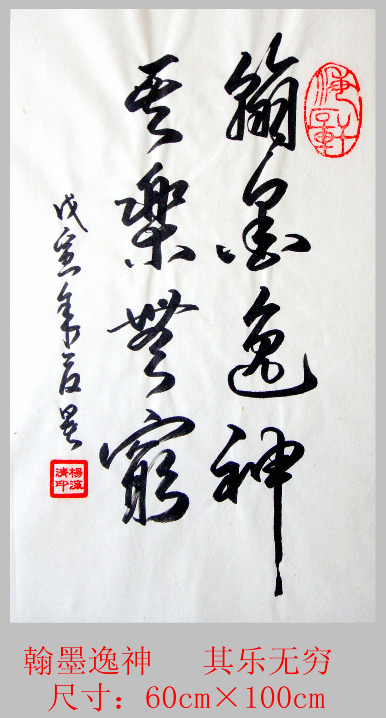 翰墨逸神
其樂無窮
戊寅年
翰墨逸神 其乐无穷
尺寸：60cm×100cm